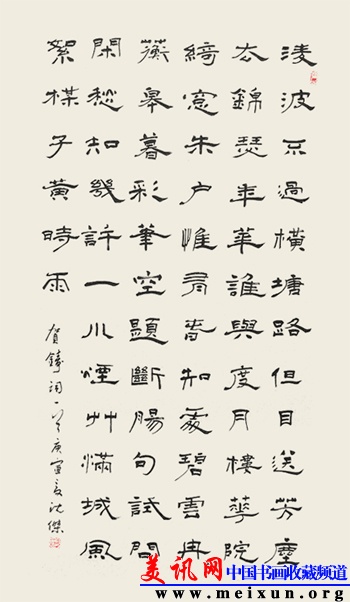 淩波不過橫塘路但目送芳塵
去錦瑟年華誰與度月樓華院
綺窗朱戶惟有春知處碧雲冉
蘅皋暮彩筆空題斷腸句試問
閑愁知幾許一川煙艸滿城風
絮楳子黃時雨
贺鑄詞一首庚寅夏沈傑
美讯网 中国书画收藏频道
www.meixun.org